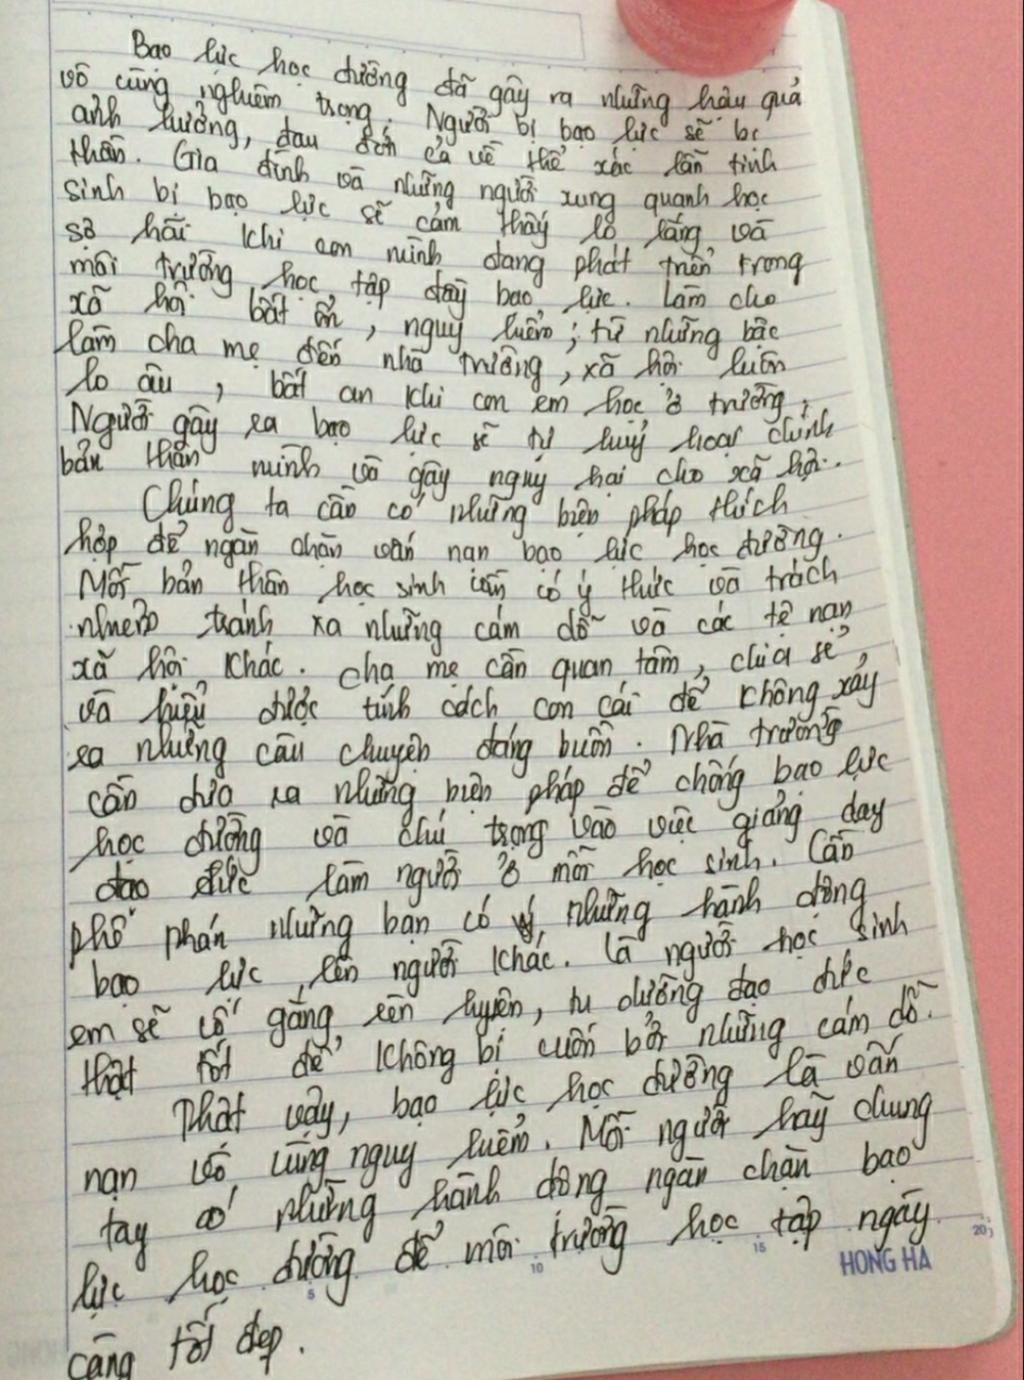 Bạo lực học đường đã gây ra những hậu quả
vô cùng nghiêm trọng. Người bị bạo lực sẽ bị
ảnh hưởng, đau đớn cả về thể xác lẫn tinh
thần. Gia đình và những người xung quanh học
sinh bị bạo lực sẽ cảm thấy lo lắng và
sợ hãi khi con mình đang phát triển trong
môi trường học tập đầy bạo lực. Làm cho
xã hội bất ổn, nguy hiểm; từ những bậc
làm cha mẹ đến nhà trường, xã hội luôn
lo âu, bất an khi con em học ở trường,
Người gây ra bạo lực sẽ tự huỷ hoại chính
bản thân mình và gây nguy hại cho xã hội.
Chúng ta cần có những biện pháp thích
hợp để ngăn chặn vấn nạn bạo lực học đường.
Mỗi bản thân học sinh cần có ý thức và trách
nhiệm tránh xa những cám dỗ và các tệ nạn
xã hội khác. cha mẹ cần quan tâm, chia sẻ,
và hiểu được tính cách con cái để không xảy
ra những câu chuyện đáng buồn. Nhà trường
cần đưa ra những biện pháp để chống bạo lực
học đường và chú trọng vào việc giảng dạy
đạo đức làm người ở mỗi học sinh. Cần
phê phán những bạn có những hành động
bạo lực lên người khác. Là người học sinh
em sẽ cố gắng rèn luyện, tu dưỡng đạo đức
thật tốt để không bị cuốn bởi những cám dỗ.
Thật vậy, bạo lực học đường là vấn
nạn vô cùng nguy hiểm. Mỗi người hãy chung
tay có những hành động ngăn chặn bạo
lực học đường để môi trường học tập ngày
càng tốt đẹp.
5 10 15 20
HONG HA